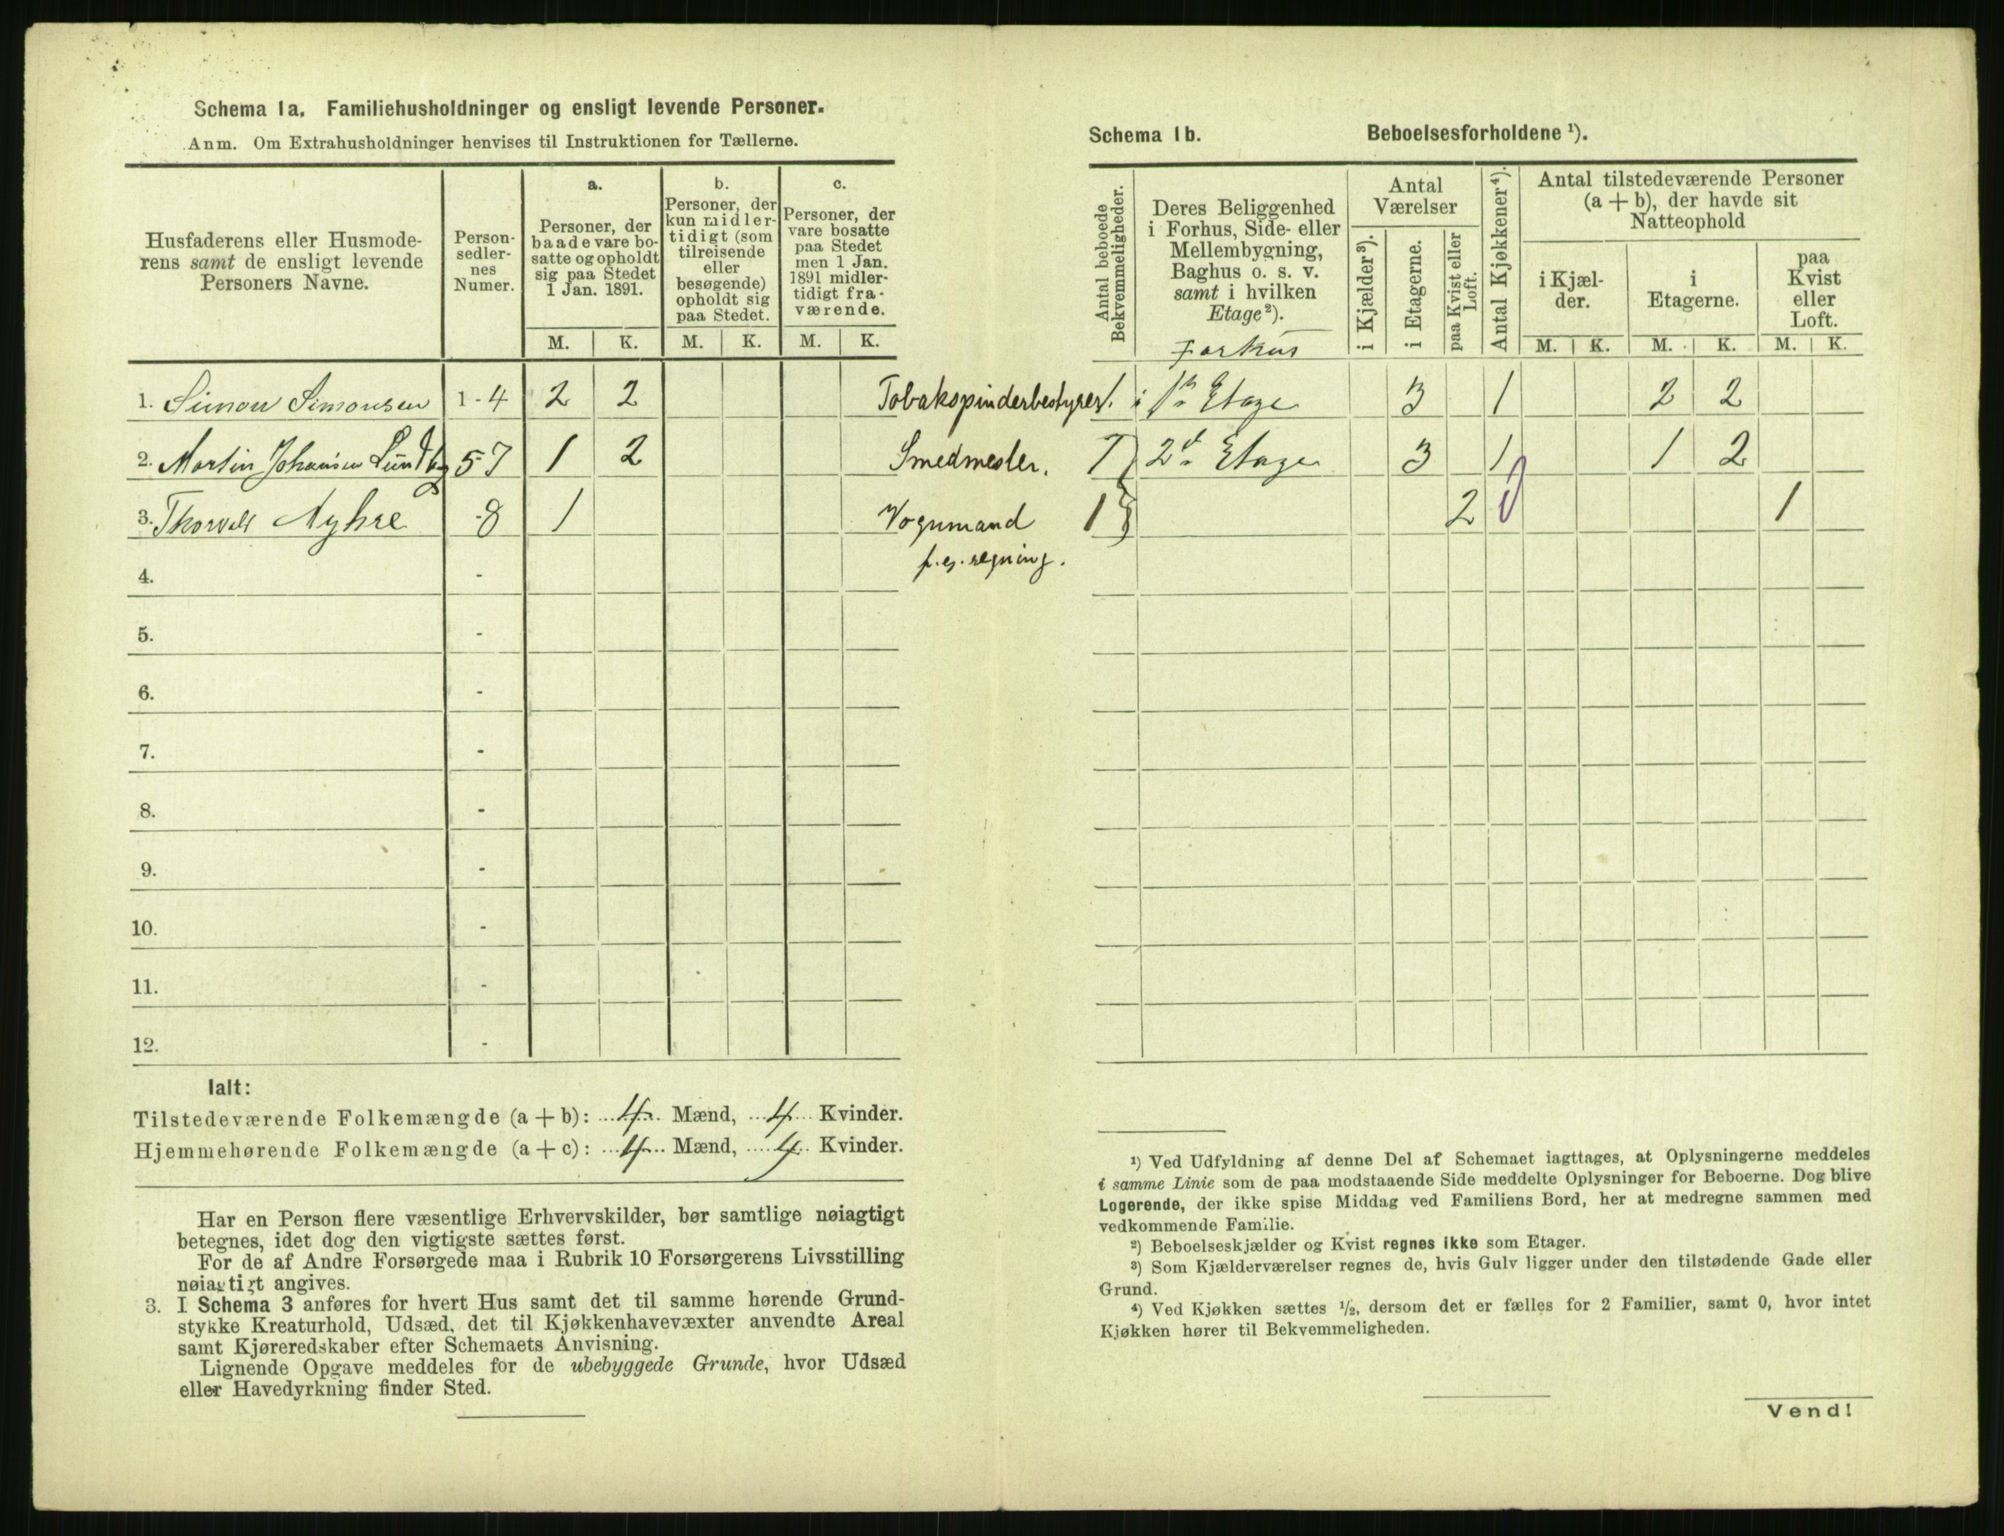 Schema 1a. Familiehusholdninger og ensligt levende Personer.
Anm. Om Extrahusholdninger henvises til Instruktionen for Tællerne.
Husfaderens eller Husmode-
rens samt de ensligt levende
Personers Navne.
Person-
sedler-
nes
Numer.
a.
Personer, der
baade vare bo-
satte og opholdt
sig paa Stedet
1 Jan. 1891.
b.
Personer, der
kun midler-
tidigt (som
tilreisende
eller
besøgende)
opholdt sig
paa Stedet.
c.
Personer, der
vare bosatte
paa Stedet
men 1 Jan.
1891 midler-
tidigt fra-
værende.
M. K. M. K. M. K.
1. Simon Simonsen 1 - 4 2 2 Tobakspinderbestyrer
2. Martin Johansen Lundby 5-7 1 2 Smedmester.
3. Thorvald Myhre - 8 1 Vognmand
f. eg. regning.
4. -
5. -
6. -
7. -
8. -
9. -
10. -
11. -
12. -
Ialt:
Tilstedeværende Folkemængde (a + b): 4 Mænd, 4 Kvinder.
Hjemmehørende Folkemængde (a + c): 4 Mænd, 4 Kvinder.
Har en Person flere væsentlige Erhvervskilder, bør samtlige nøiagtigt
betegnes, idet dog den vigtigste sættes først.
For de af Andre Forsørgede maa i Rubrik 10 Forsørgerens Livsstilling
nøiagtigt angives.
3. I Schema 3 anføres for hvert Hus samt det til samme hørende Grund-
stykke Kreaturhold, Udsæd, det til Kjøkkenhavevæxter anvendte Areal
samt Kjøreredskaber efter Schemaets Anvisning.
Lignende Opgave meddeles for de ubebyggede Grunde, hvor Udsæd
eller Havedyrkning finder Sted.
Schema 1b. Beboelsesforholdene ¹).
Antal beboede
Bekvemmeligheder.
Deres Beliggenhed
i Forhus, Side- eller
Mellembygning,
Baghus o. s. v.
samt i hvilken
Etage ²).
Forhus
Antal
Værelser
i Kjælder ³).
i Etagerne.
paa Kvist eller
Loft.
Antal Kjøkkener ⁴).
Antal tilstedeværende Personer
(a + b), der havde sit
Natteophold
i Kjæl-
der.
i
Etagerne.
paa
Kvist
eller
Loft.
M. K. M. K. M. K.
1. i 1ste Etage 3 1 2 2
1 2d. Etage 3 1 1 2
1 2 0 1
¹) Ved Udfyldning af denne Del af Schemaet iagttages, at Oplysningerne meddeles
i samme Linie som de paa modstaaende Side meddelte Oplysninger for Beboerne. Dog blive
Logerende, der ikke spise Middag ved Familiens Bord, her at medregne sammen med
vedkommende Familie.
²) Beboelseskjælder og Kvist regnes ikke som Etager.
³) Som Kjælderværelser regnes de, hvis Gulv ligger under den tilstødende Gade eller
Grund.
⁴) Ved Kjøkken sættes ½, dersom det er fælles for 2 Familier, samt 0, hvor intet
Kjøkken hører til Bekvemmeligheden.
Vend!